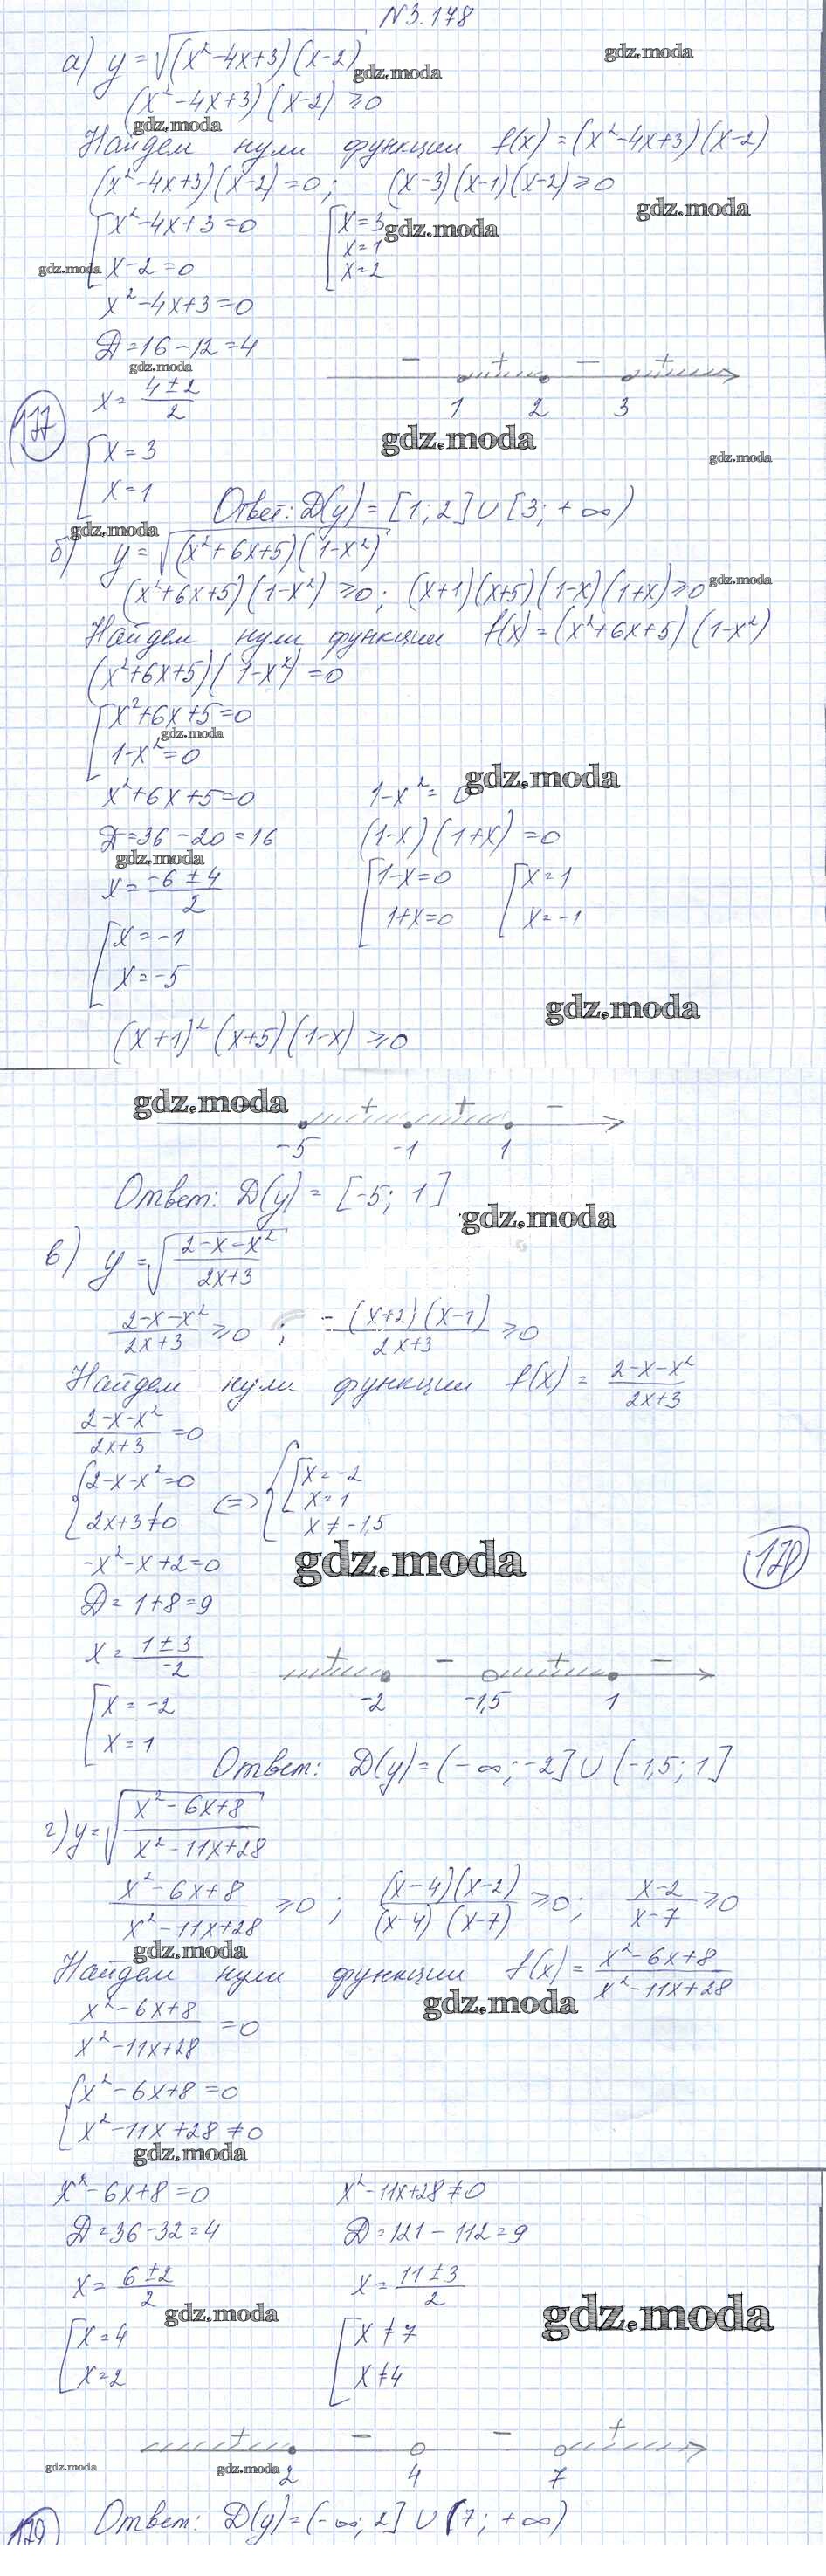 N3.178
а) y = √(x²-4x+3)(x-2)
gdz.moda
gdz.moda
(x²-4x+3)(x-2) ≥ 0
gdz.moda
Найдем нули функции f(x) = (x²-4x+3)(x-2)
(x²-4x+3)(x-2) = 0; (x-3)(x-1)(x-2) ≥ 0
gdz.moda
[x²-4x+3 = 0 [x = 3
gdz.moda
x = 1
x-2 = 0 x = 2
gdz.moda
x²-4x+3 = 0
D = 16-12 = 4
gdz.moda
- + - +
x = (4±2)/2
1 2 3
177
gdz.moda
[x = 3
gdz.moda
x = 1
Ответ: D(y) = [1; 2] ∪ [3; +∞)
gdz.moda
б) y = √(x²+6x+5)(1-x²)
(x²+6x+5)(1-x²) ≥ 0; (x+1)(x+5)(1-x)(1+x) ≥ 0
gdz.moda
Найдем нули функции f(x) = (x²+6x+5)(1-x²)
(x²+6x+5)(1-x²) = 0
[x²+6x+5 = 0
gdz.moda
1-x² = 0
gdz.moda
x²+6x+5 = 0 1-x² = 0
D = 36-20 = 16 (1-x)(1+x) = 0
gdz.moda
x = (-6±4)/2 [1-x = 0 [x = 1
1+x = 0 x = -1
[x = -1
x = -5
gdz.moda
(x+1)²(x+5)(1-x) ≥ 0
gdz.moda
+ + -
-5 -1 1
Ответ: D(y) = [-5; 1]
gdz.moda
в) y = √((2-x-x²)/(2x+3))
(2-x-x²)/(2x+3) ≥ 0; -((x+2)(x-1))/(2x+3) ≥ 0
Найдем нули функции f(x) = (2-x-x²)/(2x+3)
(2-x-x²)/(2x+3) = 0
{2-x-x² = 0 <=> {[x = -2
x = 1
2x+3 ≠ 0 x ≠ -1,5
gdz.moda
178
-x²-x+2 = 0
D = 1+8 = 9
x = (1±3)/-2
+ - + -
-2 -1,5 1
[x = -2
x = 1
Ответ: D(y) = (-∞; -2] ∪ (-1,5; 1]
г) y = √((x²-6x+8)/(x²-11x+28))
(x²-6x+8)/(x²-11x+28) ≥ 0; ((x-4)(x-2))/((x-4)(x-7)) ≥ 0; (x-2)/(x-7) ≥ 0
gdz.moda
Найдем нули функции f(x) = (x²-6x+8)/(x²-11x+28)
gdz.moda
(x²-6x+8)/(x²-11x+28) = 0
{x²-6x+8 = 0
x²-11x+28 ≠ 0
gdz.moda
x²-6x+8 = 0 x²-11x+28 ≠ 0
D = 36-32 = 4 D = 121-112 = 9
x = (6±2)/2 x = (11±3)/2
gdz.moda
gdz.moda
[x = 4 [x ≠ 7
x = 2 x ≠ 4
+ - - +
gdz.moda
gdz.moda
2 4 7
179
Ответ: D(y) = (-∞; 2] ∪ (7; +∞)